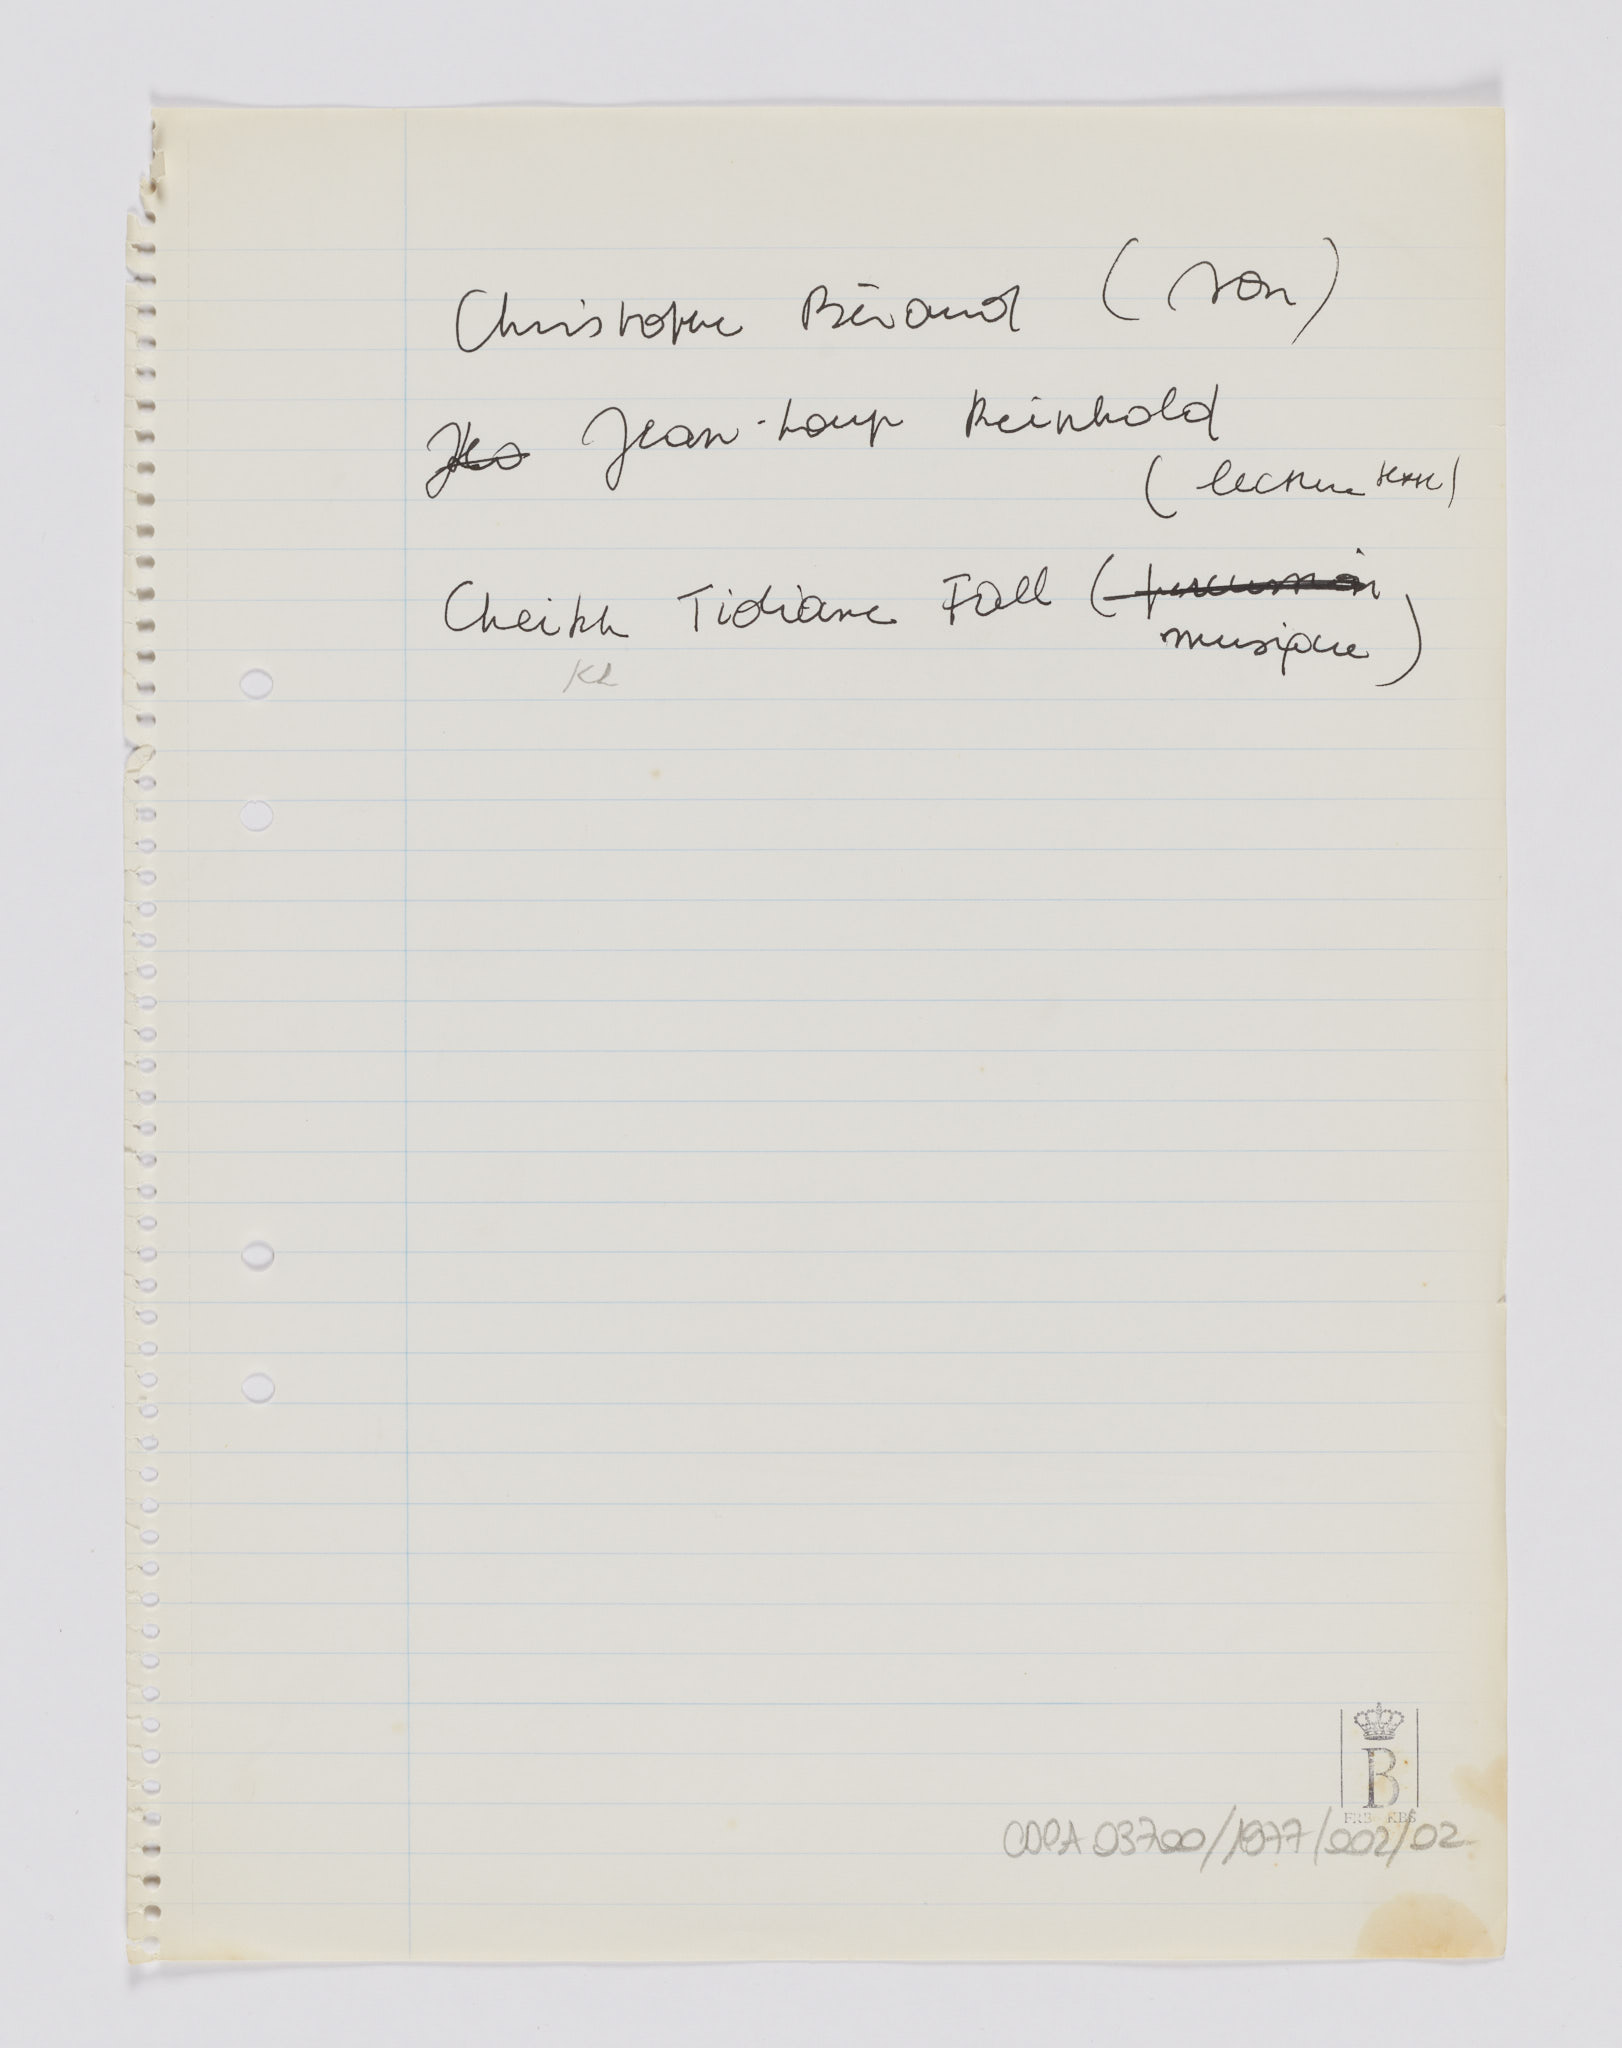 Christophe Béraud (son)
Jea Jean-Loup Reinhold
(lecture texte)
Cheikh Tidiane Fall (percussion
musique)
B
FRB KBS
CDPA 03700/1977/002/02